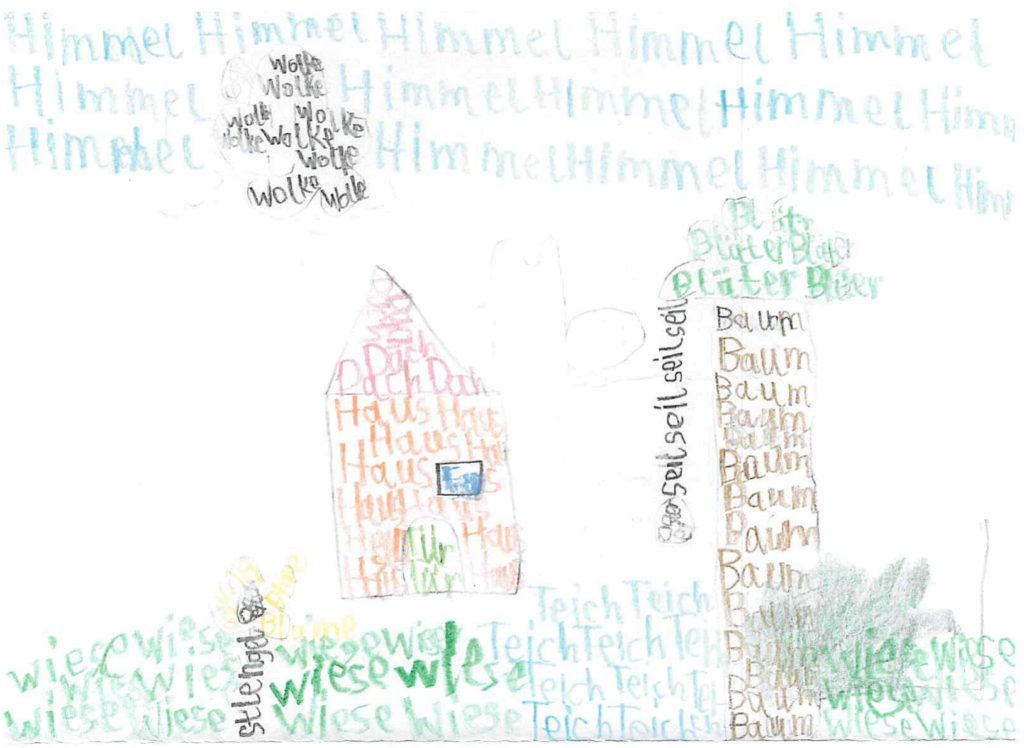 Himmel Himmel Himmel Himmel Himmel
Himmel Himmel Himmel Himmel Him
Himmel Himmel Himmel Himmel Him
Wolke
Wolke
Wolk Wolke
Wolke Wolke
Wolke
Wolke Wolke
Bläter
Bläter Bläter
Bläter Bläter
seil seil seil seil
Dach
Dach
Dach
Dach Dach
Haus Haus
Haus
Haus
Haus
Tür
Tür
Baum
Baum
Baum
Baum
Baum
Baum
Baum
Baum
Baum
Baum
Baum
Baum
Baum
Baum
Blume
Blume
stlengel
Teich Teich
Teich Teich Teich
Teich Teich Tei
Teich Teich
wiese wiese wiese wiese
wiese wiese wiese wiese
wiese wiese wiese wiese
wiese wiese
wiese wiese
wiese wiese